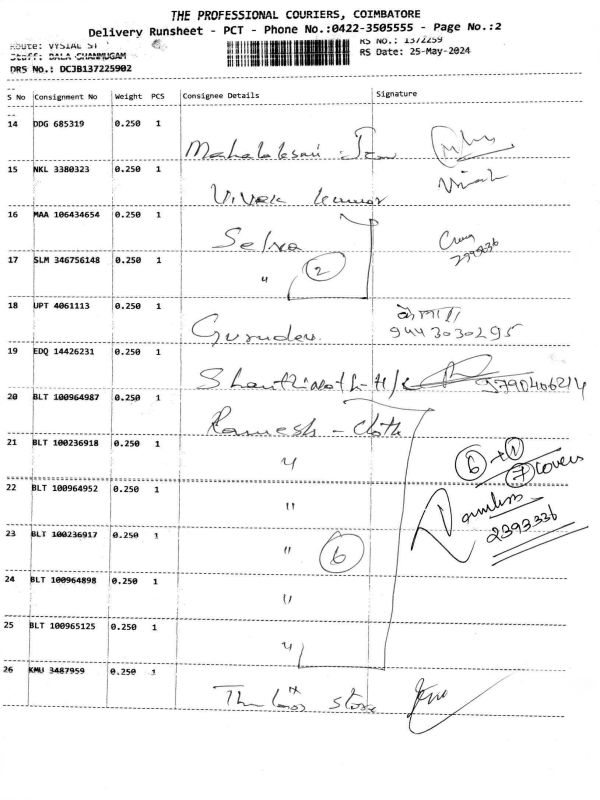 THE PROFESSIONAL COURIERS, COIMBATORE
Delivery Runsheet - PCT - Phone No.:0422-3505555 - Page No.:2
Route: VYSIAL ST
RS No.: 1372259
Staff: BALA SHANMUGAM
RS Date: 25-May-2024
DRS No.: DCJB137225902
S No Consignment No Weight PCS Consignee Details Signature
14 DDG 685319 0.250 1
15 NKL 3380323 0.250 1 Vivek kumar
16 MAA 106434654 0.250 1 Selva
17 SLM 346756148 0.250 1 〃 2
18 UPT 4061113 0.250 1 Gurudev 9443030295
19 EDQ 14426231 0.250 1 9790406214
20 BLT 100964987 0.250 1 Ramesh - Cloth
21 BLT 100236918 0.250 1 〃 6 + 1
7 covers
22 BLT 100964952 0.250 1 〃
2393336
23 BLT 100236917 0.250 1 〃 6
24 BLT 100964898 0.250 1 〃
25 BLT 100965125 0.250 1 〃
26 KMU 3487959 0.250 1 store